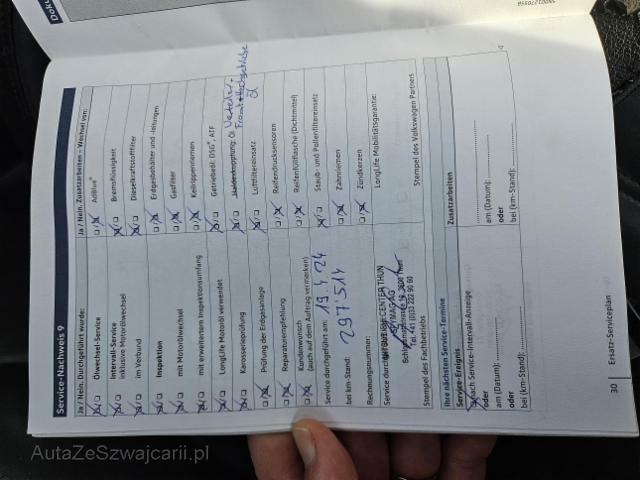 Service-Nachweis 9
Ja / Nein. Durchgeführt wurde:
Ölwechsel-Service
Intervall-Service
inklusive Motorölwechsel
im Verbund
Inspektion
mit Motorölwechsel
mit erweitertem Inspektionsumfang
LongLife Motoröl verwendet
Karosserieprüfung
Prüfung der Erdgasanlage
Reparaturempfehlung
Kundenwunsch
(auch auf dem Auftrag vermerken)
Service durchgeführt am: 19.4.24
bei km-Stand: 297.514
Rechnungsnummer:
Service durch
CENTER THUN
AMAG AG
3600 Thun
Tel. +41 (0)33 222 90 60
Stempel des Fachbetriebs
Ja / Nein. Zusatzarbeiten – Wechsel von:
AdBlue®
Bremsflüssigkeit
Dieselkraftstofffilter
Erdgasbehälter und -leitungen
Gasfilter
Keilrippenriemen
Getriebeöl: DSG®, ATF
Haldexkupplung: Öl
Front
Öl
Luftfiltereinsatz
Reifendrucksensoren
Reifenfüllflasche (Dichtmittel)
Staub- und Pollenfiltereinsatz
Zahnriemen
Zündkerzen
LongLife Mobilitätsgarantie:
Stempel des Volkswagen Partners
Ihre nächsten Service-Termine
Service-Ereignis
nach Service-Intervall-Anzeige
oder
am (Datum):
oder
bei (km-Stand):
Zusatzarbeiten
am (Datum):
oder
bei (km-Stand):
30
Ersatz-Serviceplan
AutaZeSzwajcarii.pl